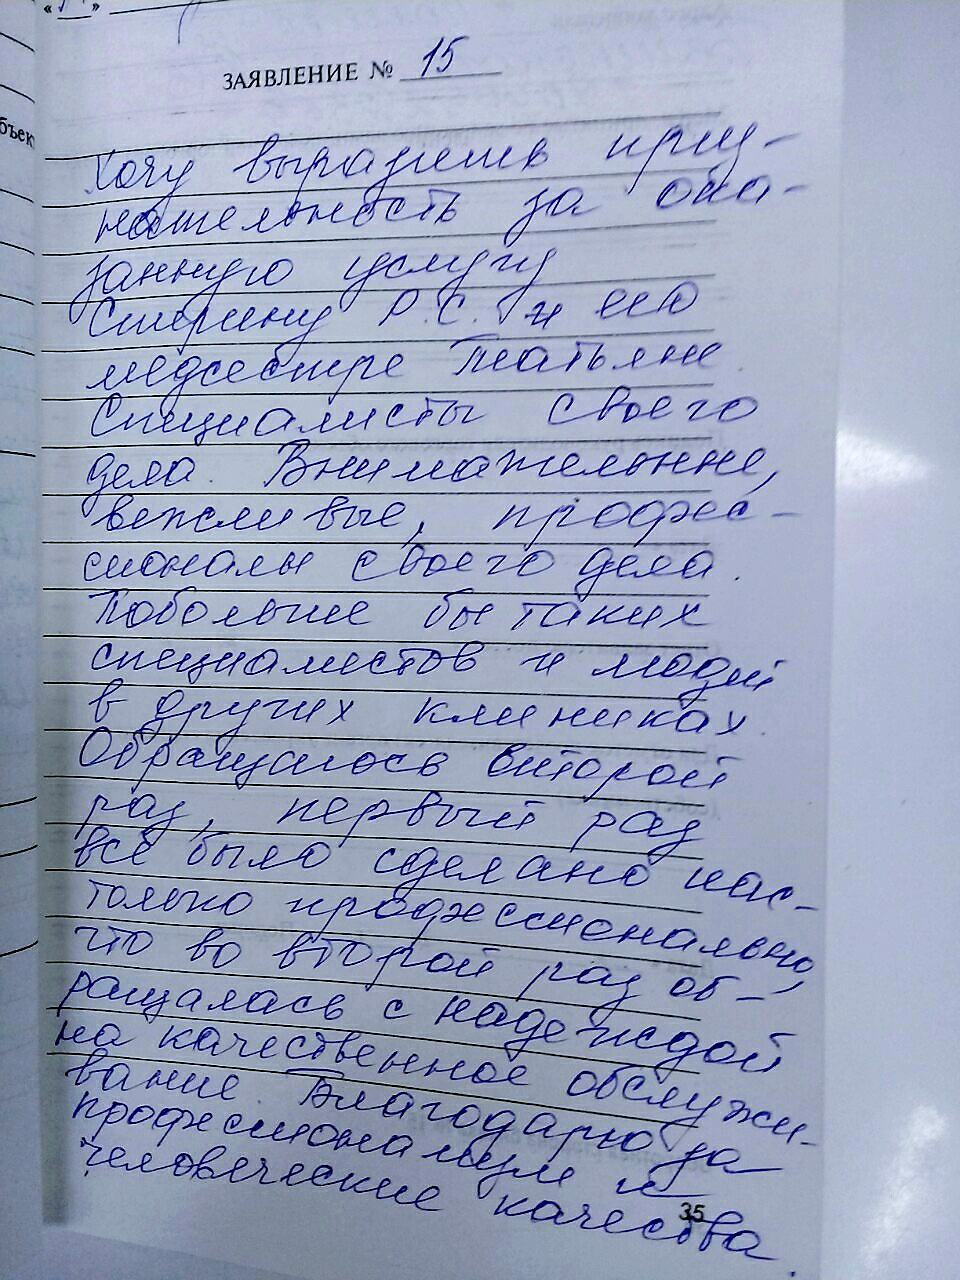 бъек
ЗАЯВЛЕНИЕ № 15
Хочу выразить приз-
нательность за ока-
занную услугу
Р.С. и его
медсестре Татьяне.
Специалисты своего
дела. Внимательные,
вежливые, профес-
сионалы своего дела.
Побольше бы таких
специалистов и людей
в других клиниках.
Обращаюсь второй
раз, первый раз
всё было сделано нас-
только профессионально,
что во второй раз об-
ращалась с надеждой
на качественное обслужи-
вание. Благодарю за
профессионализм и
человеческие качества.
35